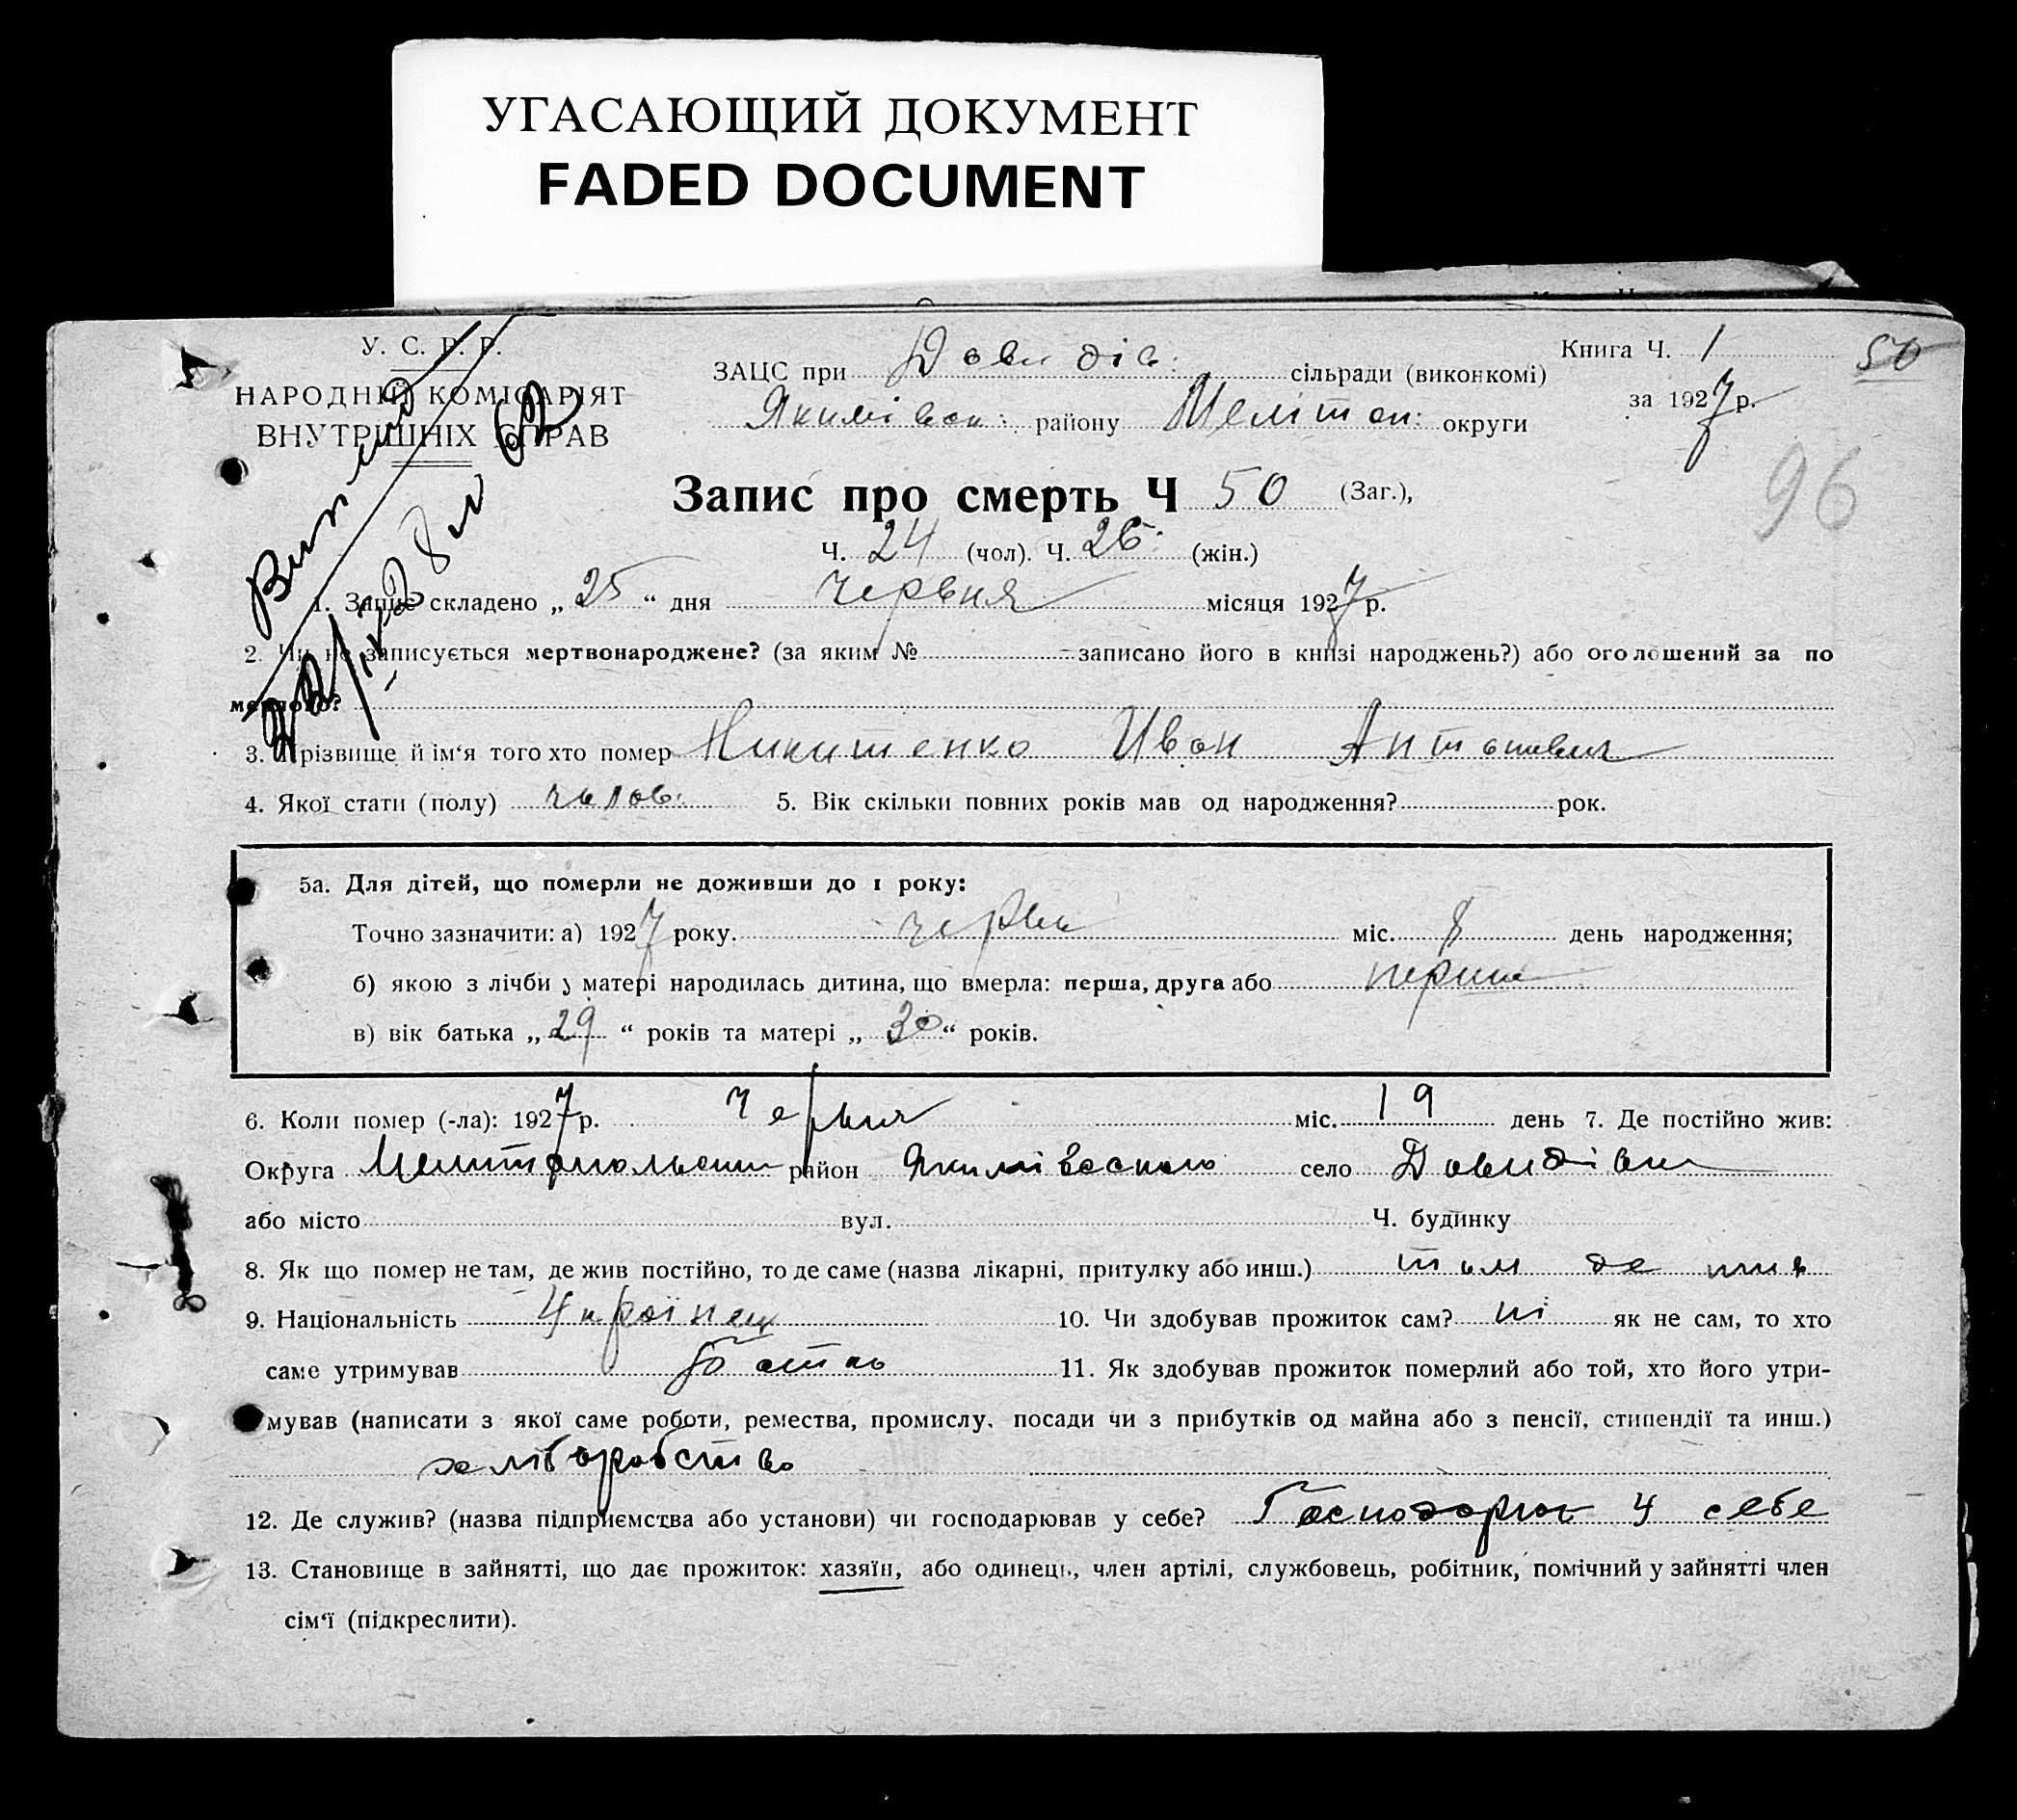 УГАСАЮЩИЙ ДОКУМЕНТ
FADED DOCUMENT
У. С. Р. Р.
НАРОДНІЙ КОМІСАРІЯТ
ВНУТРІШНІХ СПРАВ
ЗАЦС при Довидів: сільради (виконкомі)
Якимівськ: району Мелітоп: округи
Книга Ч. 1
50
за 1927 р.
96
Запис про смерть Ч 50 (Заг.),
Ч. 24 (чол). Ч. 26 (жін.)
1. Запис складено „ 25 “ дня червня місяця 1927 р.
2. Чи не записується мертвонароджене? (за яким № записано його в книзі народжень?) або оголошений за по
мерлого?
3. Прізвище й ім‘я того хто помер Никитенко Иван Антонович
4. Якої стати (полу) чолов. 5. Вік скільки повних років мав од народження? рок.
5а. Для дітей, що померли не доживши до 1 року:
Точно зазначити: а) 1927 року. червн міс. 8 день народження;
б) якою з лічби у матері народилась дитина, що вмерла: перша, друга або перша
в) вік батька „ 29 “ років та матері „ 30 “ років.
6. Коли помер (-ла): 1927 р. червня міс. 19 день 7. Де постійно жив:
Округа район Якимівського село Довидівка
або місто вул. Ч. будинку
8. Як що помер не там, де жив постійно, то де саме (назва лікарні, притулку або инш.) там де жив
9. Національність Українец 10. Чи здобував прожиток сам? ні як не сам, то хто
саме утримував батько 11. Як здобував прожиток померлий або той, хто його утри-
мував (написати з якої саме роботи, ремества, промислу, посади чи з прибутків од майна або з пенсії, стипендії та инш.)
хліборобство
12. Де служив? (назва підприємства або установи) чи господарював у себе? Господарює у себе
13. Становище в зайнятті, що дає прожиток: хазяїн, або одинець, член артілі, службовець, робітник, помічний у зайнятті член
сім‘ї (підкреслити).